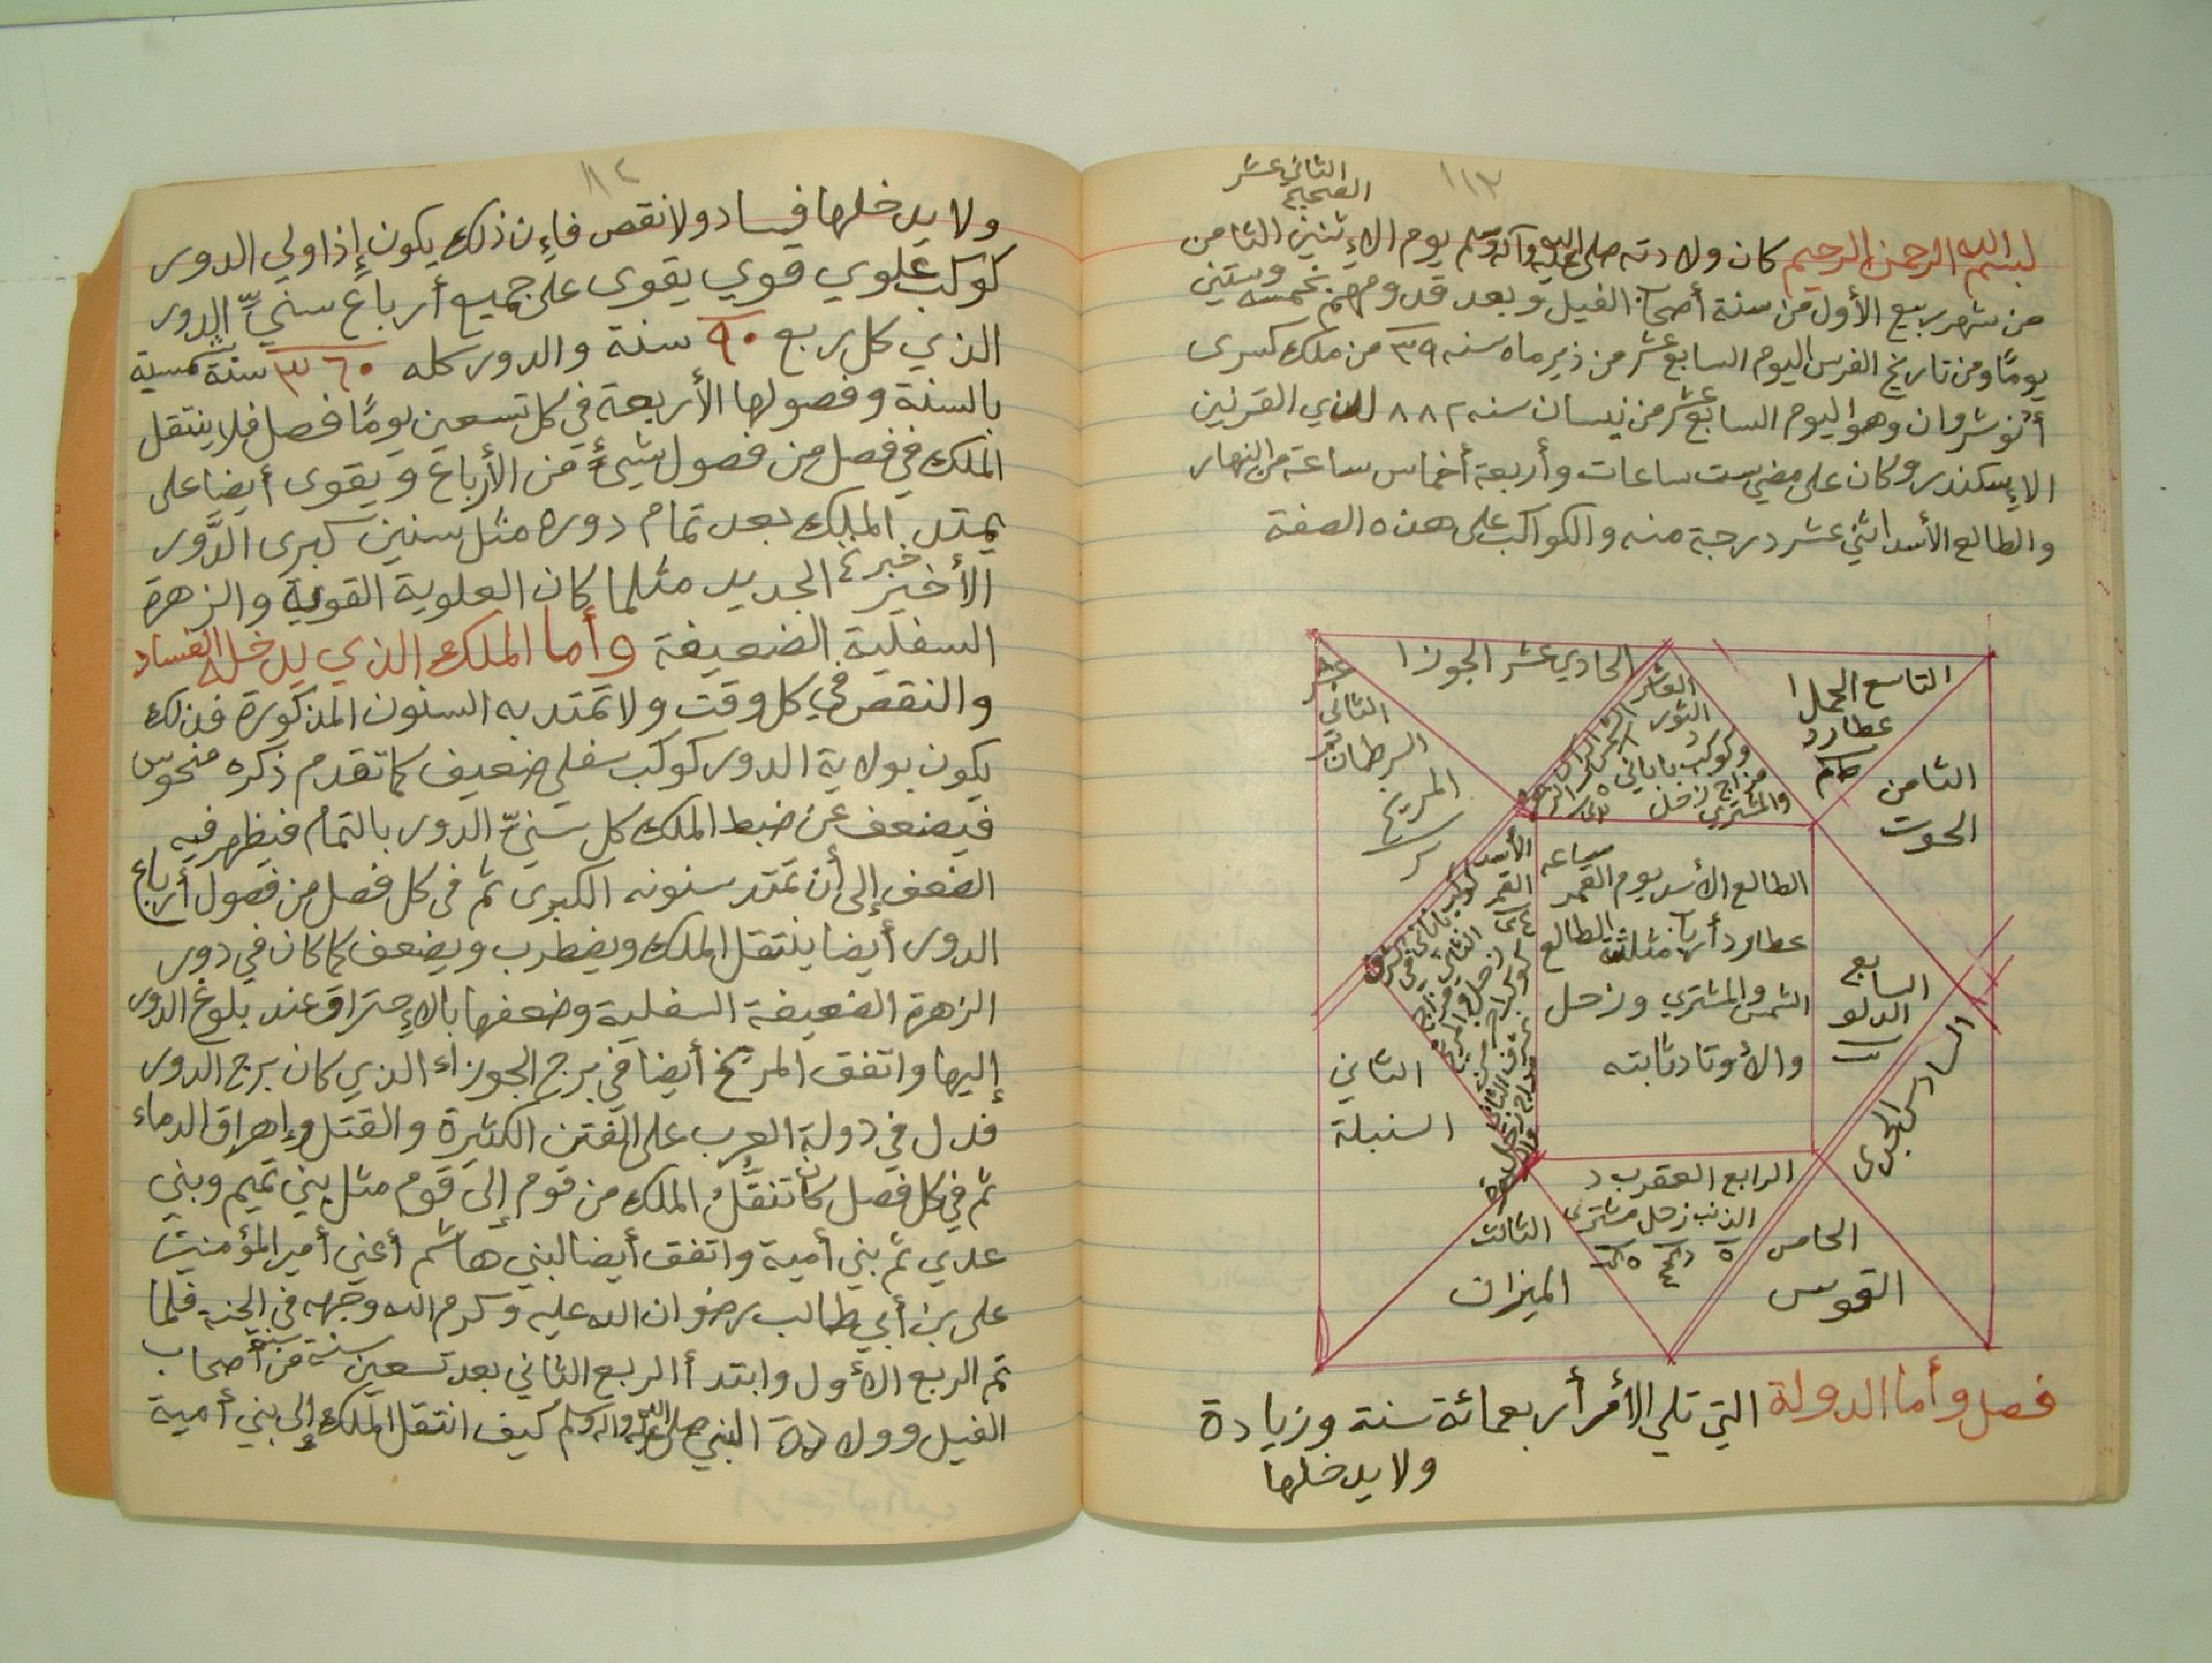 ١١٣
الثاني عشر
الصحيح
بسم الله الرحمن الرحيم كان ولادته صلى الله عليه وآله وسلم يوم الإثنين الثامن
من شهر ربيع الأول من سنة أصحاب الفيل وبعد قدومهم بخمسه وستين
يومًا ومن تاريخ الفرس اليوم السابع عشر من ذيرماه سنه ٣٩ من ملك كسرى
أنوشروان وهو اليوم السابع عشر من نيسان سنه ٨٨٢ للذي القرنين
الإسكندر وكان على مضي ست ساعات وأربعة أخماس ساعة من النهار
والطالع الأسد اثني عشر درجة منه والكواكب على هذه الصفة
الحادي عشر الجوزا
التاسع الحمل ا
عطارد
العاشر
الثور
وكوكب باباني
مزاج زحل
والمشتري
الثاني عشر
السرطان
المريخ
الثامن
الحوت
الطالع الأسد يوم القمر
ساعه
عطارد أرباب مثلثة الطالع
الشمس والمشتري وزحل
والأوتاد ثابته
الأسد
القمر
السابع
الدلو
السادس الجدى
الثاني
السنبلة
الرابع العقرب د
الذنب زحل مشترى
الثالث
الميزان
الخامس
القوس
فصل وأما الدولة التي تلي الأمر أربعمائة سنة وزيادة
ولا يدخلها
ولا يدخلها فساد ولا نقص فإن ذلك يكون إذا ولي الدور
كوكب علوي قوي يقوى على جميع أرباع سنيِّ الدور
الذي كل ربع ٩٠ سنة والدور كله ٣٦٠ سنة شمسية
بالسنة وفصولها الأربعة في كل تسعين يومًا فصل فلا ينتقل
الملك في فصل من فصول شيءٍ من الأرباع ويقوى أيضا على
يمتد الملك بعد تمام دوره مثل سنين كبرى الدَّور
الأخير الجديد مثلما كان العلوية القوية والزهرة
السفلية الضعيفة وأما الملك الذي يدخله الفساد
والنقص في كل وقت ولا تمتد به السنون المذكورة فذلك
يكون بولاية الدور كوكب سفلي ضعيف كما تقدم ذكره منحوس
فيضعف عن ضبط الملك كل سَنيِّ الدور بالتمام فيظهر فيه
الضعف إلى أن تمتد سنونه الكبرى ثم في كل فصل من فصول أرباع
الدور أيضا ينتقل الملك ويضطرب ويضعف كما كان في دور
الزهرة الضعيفة السفلية وضعفها بالإحتراق عند بلوغ الدور
إليها واتفق المريخ أيضا في برج الجوزاء الذي كان برج الدور
فدل في دولة العرب على الفتن الكثيرة والقتل وإهراق الدماء
ثم في كل فصل كان تنقّل الملك من قوم إلى قوم مثل بني تميم وبني
عدي ثم بني أمية واتفق أيضا لبني هاشم أعني أمير المؤمنين
على بن أبي طالب رضوان الله عليه وكرم الله وجهه في الجنة فلما
تم الربع الأول وابتدأ الربع الثاني بعد تسعين سنة من سنة أصحاب
الفيل وولادة النبي صلى الله عليه واله وسلم كيف انتقل الملك إلى بني أمية